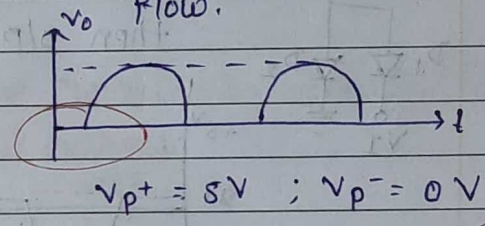 flow.
Vo
t
Vp+ = 5V ; Vp- = 0 V